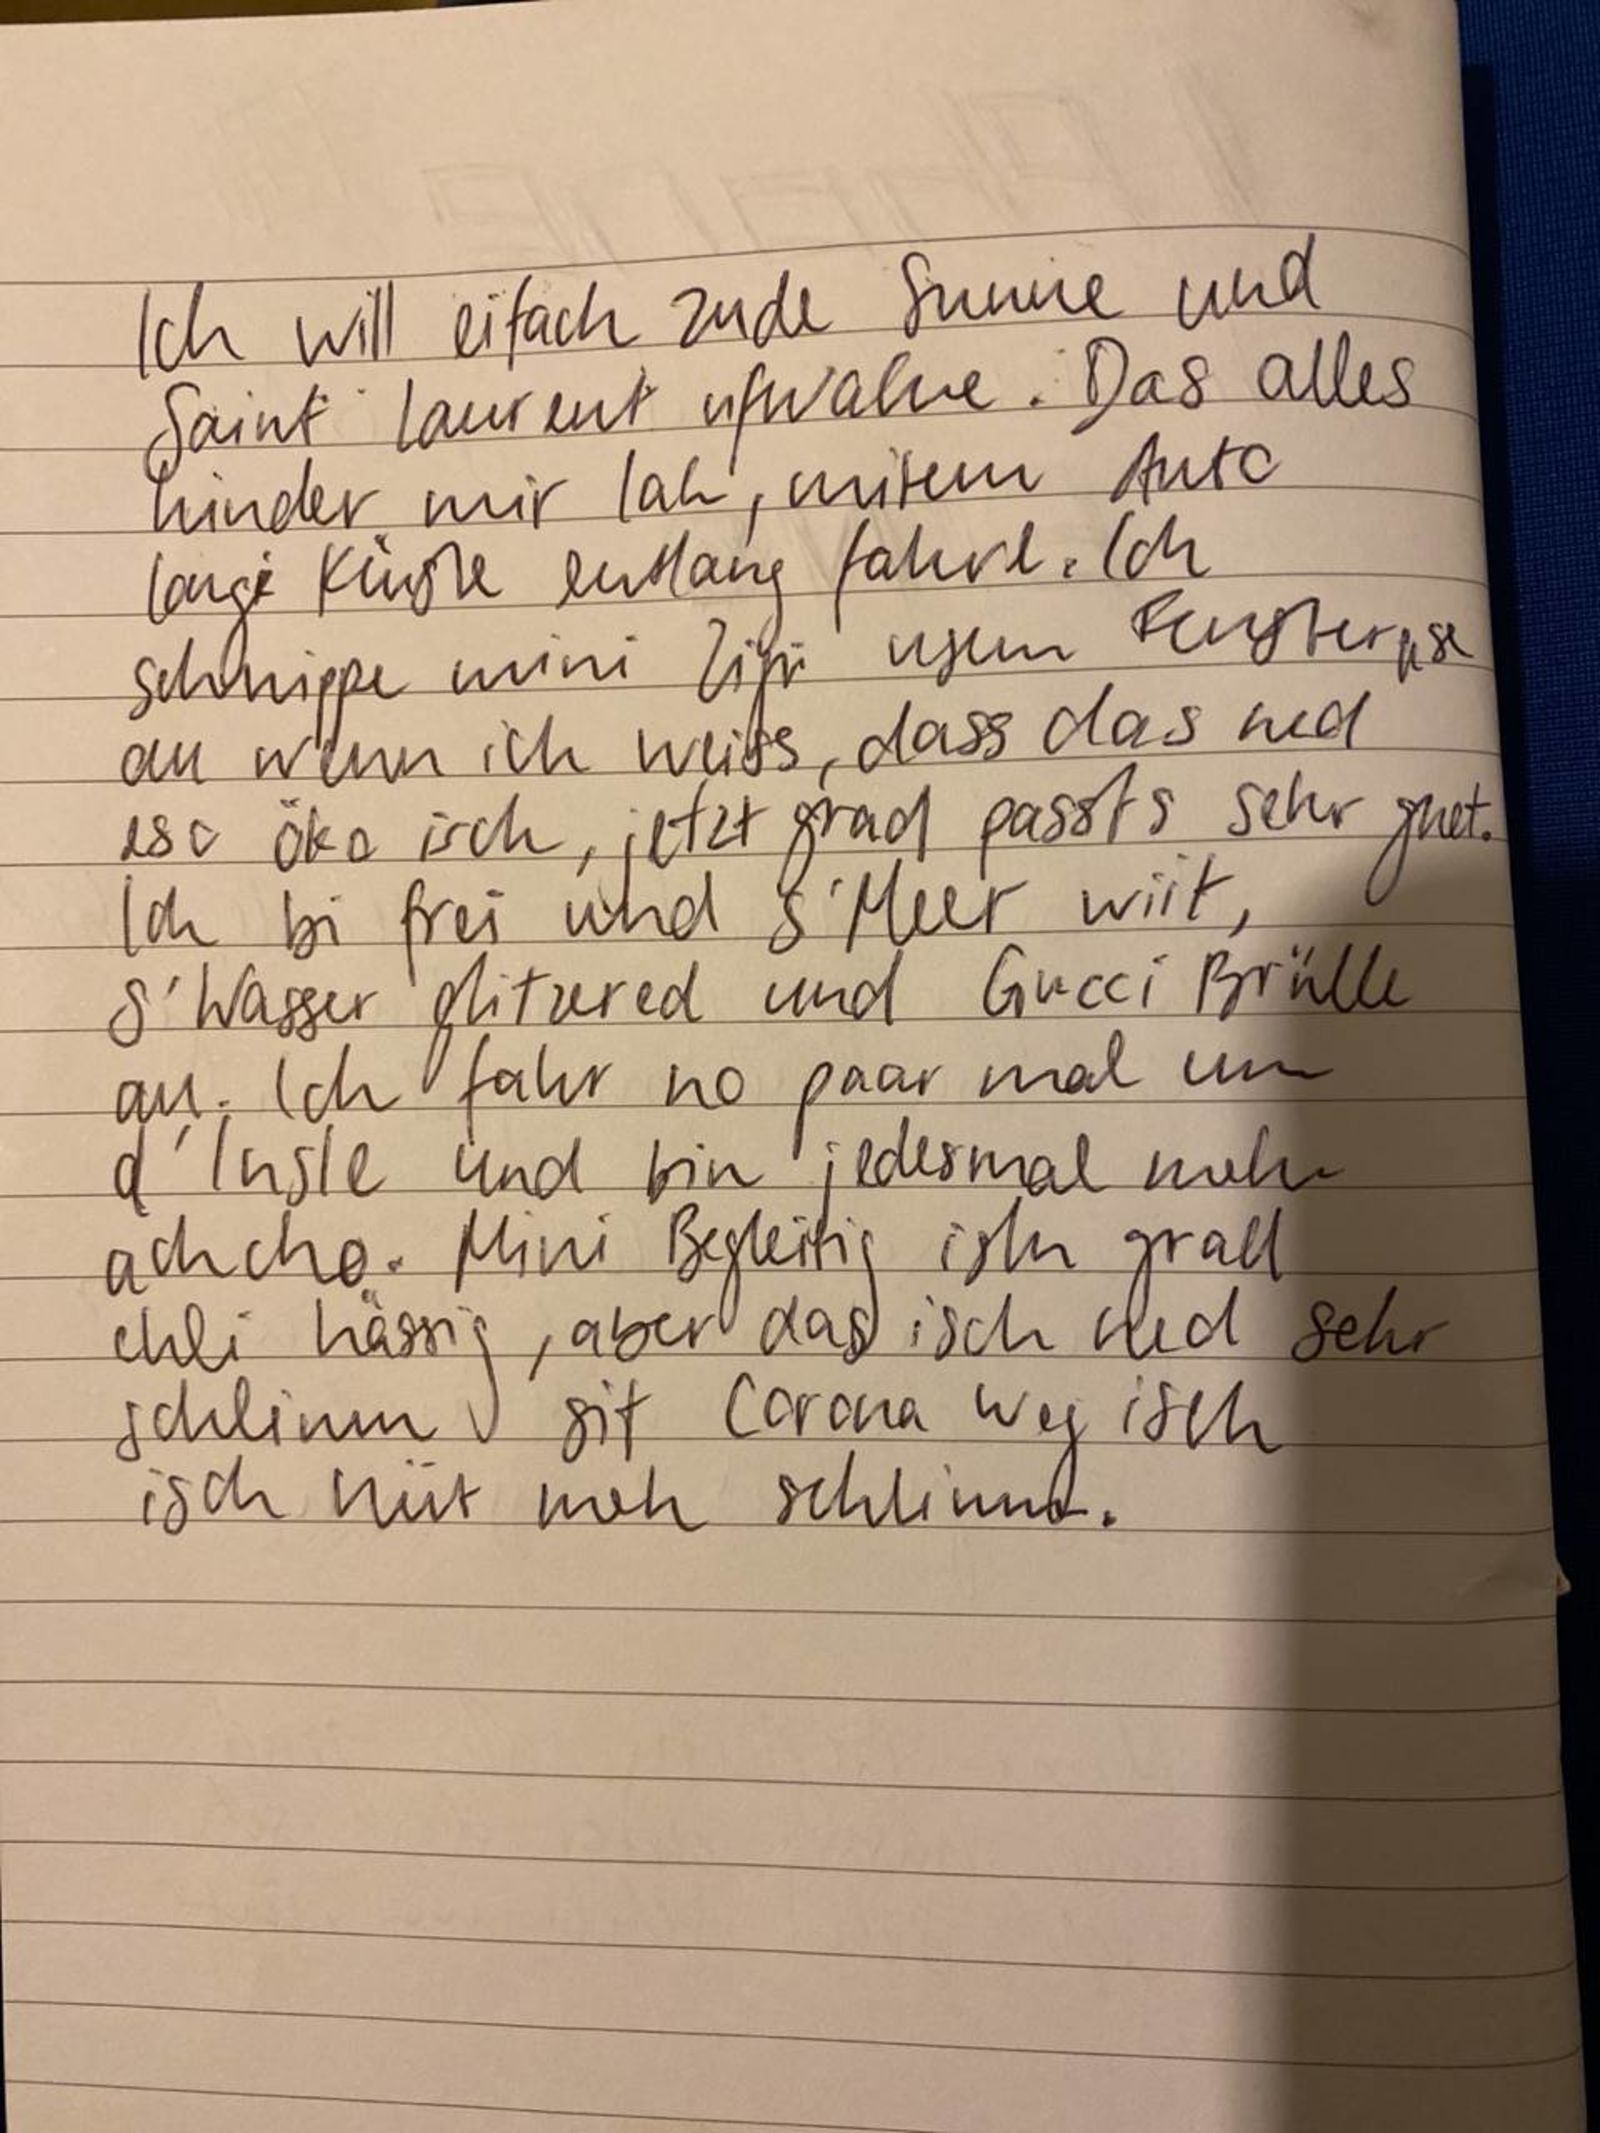 Ich will eifach zude Sunne und
Saint Laurent ufwache. Das alles
hinder mir lah, mitem Auto
langi Küste entlang fahre. Ich
schnippe mini Zigi usem Fenster use
au wenn ich weiss, dass das ned
eso öko isch, jetzt grad passts sehr guet.
Ich bi frei und s'Meer wiit,
s'Wasser glitzered und Gucci Brülle
an. Ich fahr no paar mal um
d'Insle und bin jedesmal meh
achcho. Mini Begleitig isch grad
chli hässig, aber das isch ned sehr
schlimm sit Corona weg isch
isch nüt meh schlimm.